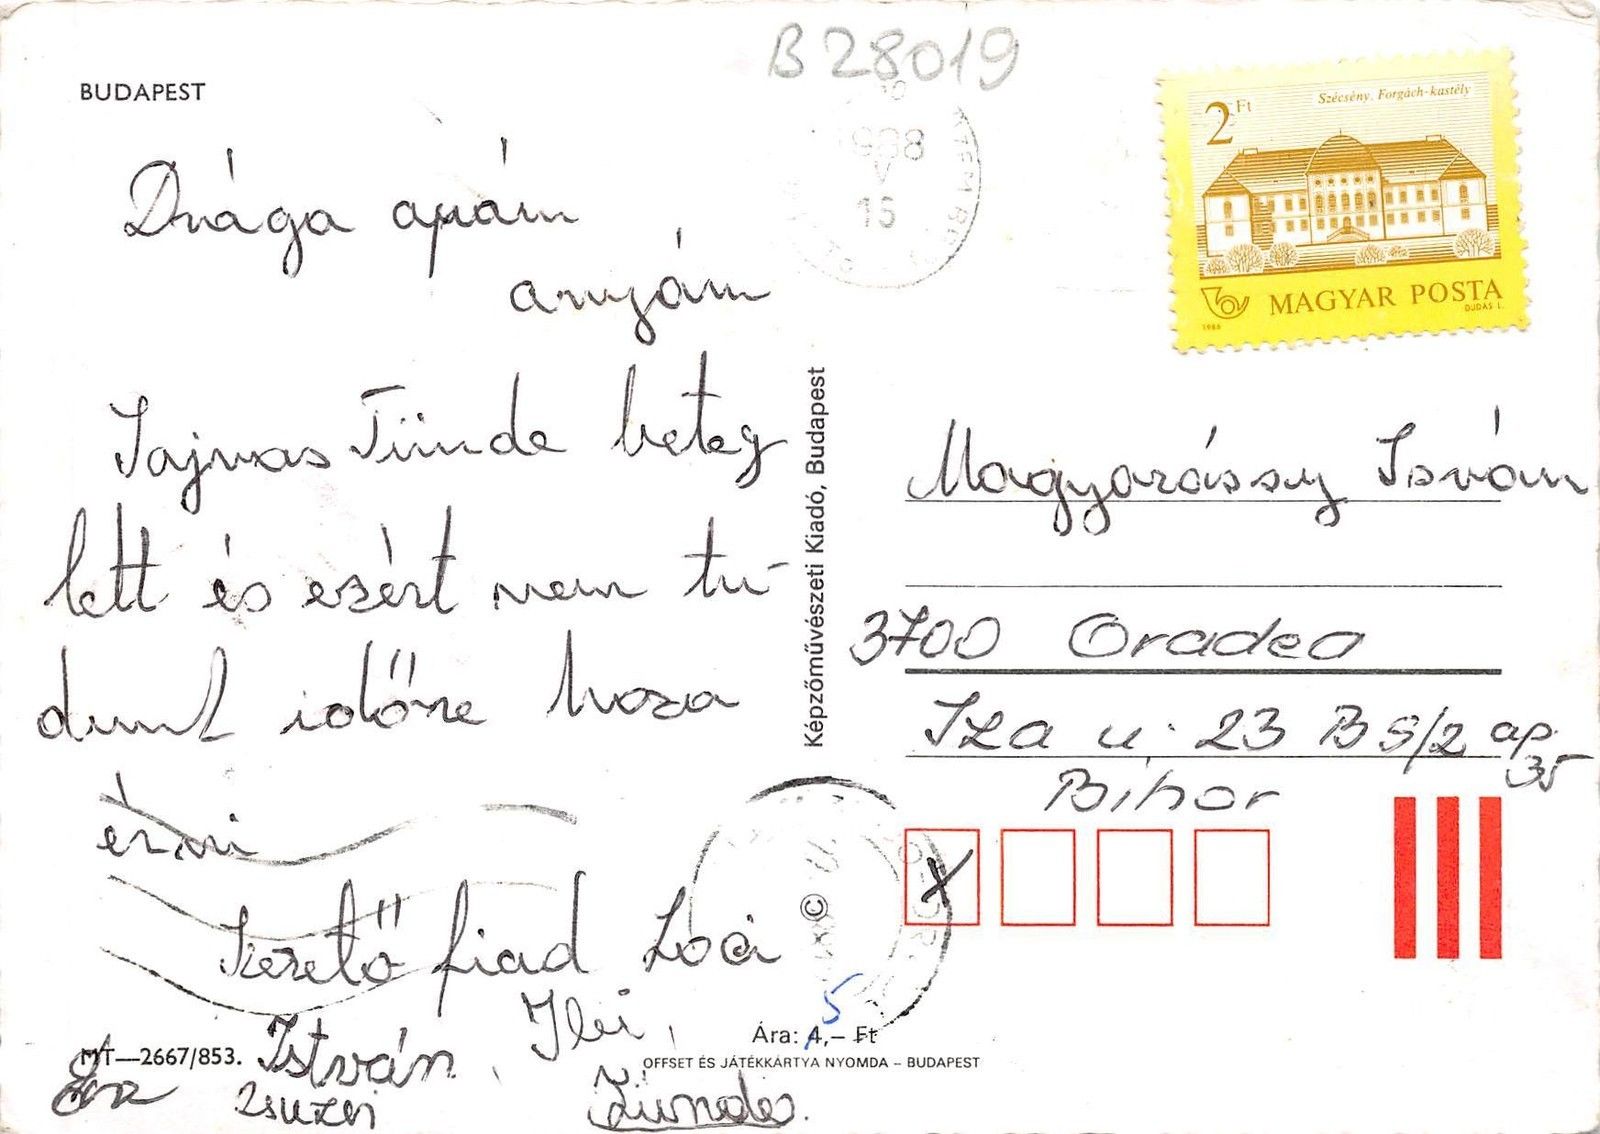 B 28019
BUDAPEST
1988
V
15
2 Ft
Szécsény. Forgách-kastély
MAGYAR POSTA
DUDÁS L.
1986
Drága apám
anyám
Sajnos Tünde beteg
lett és ezért nem tu-
dunk időre haza
érni
Szerető fiad Loci
István, Ili,
Zsuzsi
Tünde.
Képzőművészeti Kiadó, Budapest
Magyarássy István
3700 Oradea
Iza u. 23 B S/2 ap.
35
Bihor
X
©
5
Ára: 4,– Ft
MT—2667/853.
OFFSET ÉS JÁTÉKKÁRTYA NYOMDA – BUDAPEST